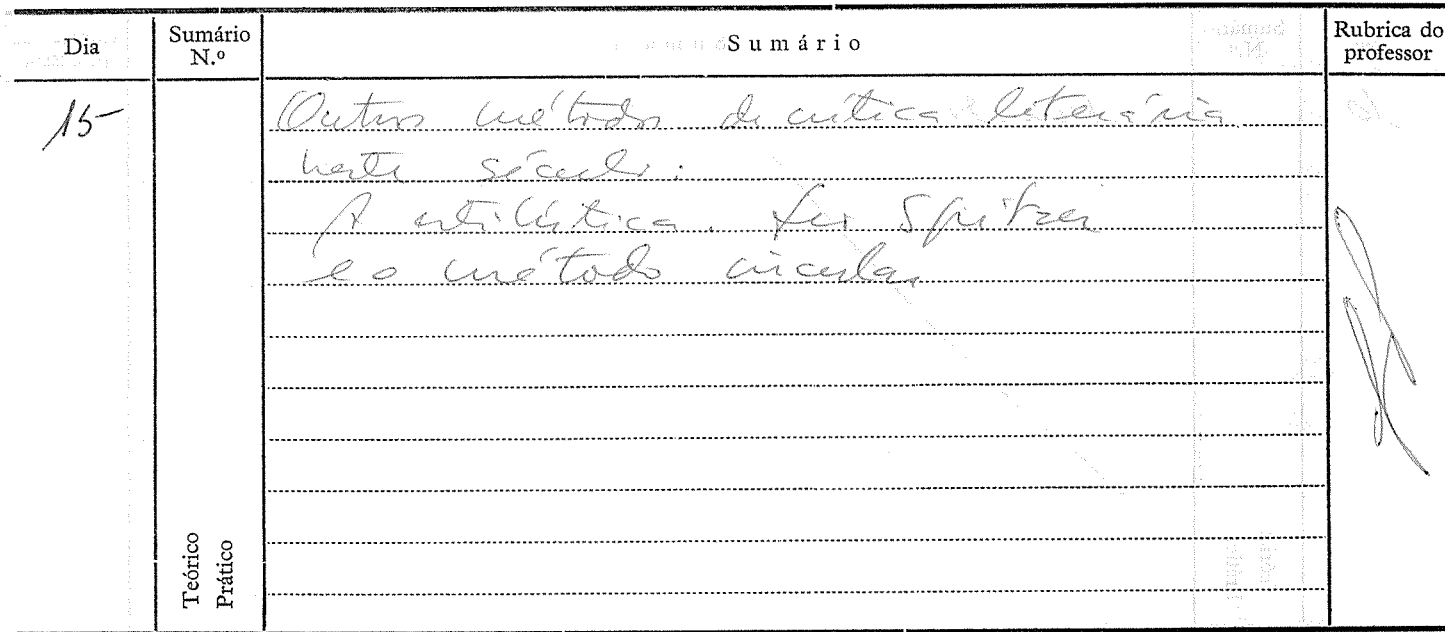 Dia
Sumário N.º
Sumário
Rubrica do professor
15
Outros métodos de crítica literária
neste século:
A estilística. Leo Spitzer
e o método circular
Teórico
Prático